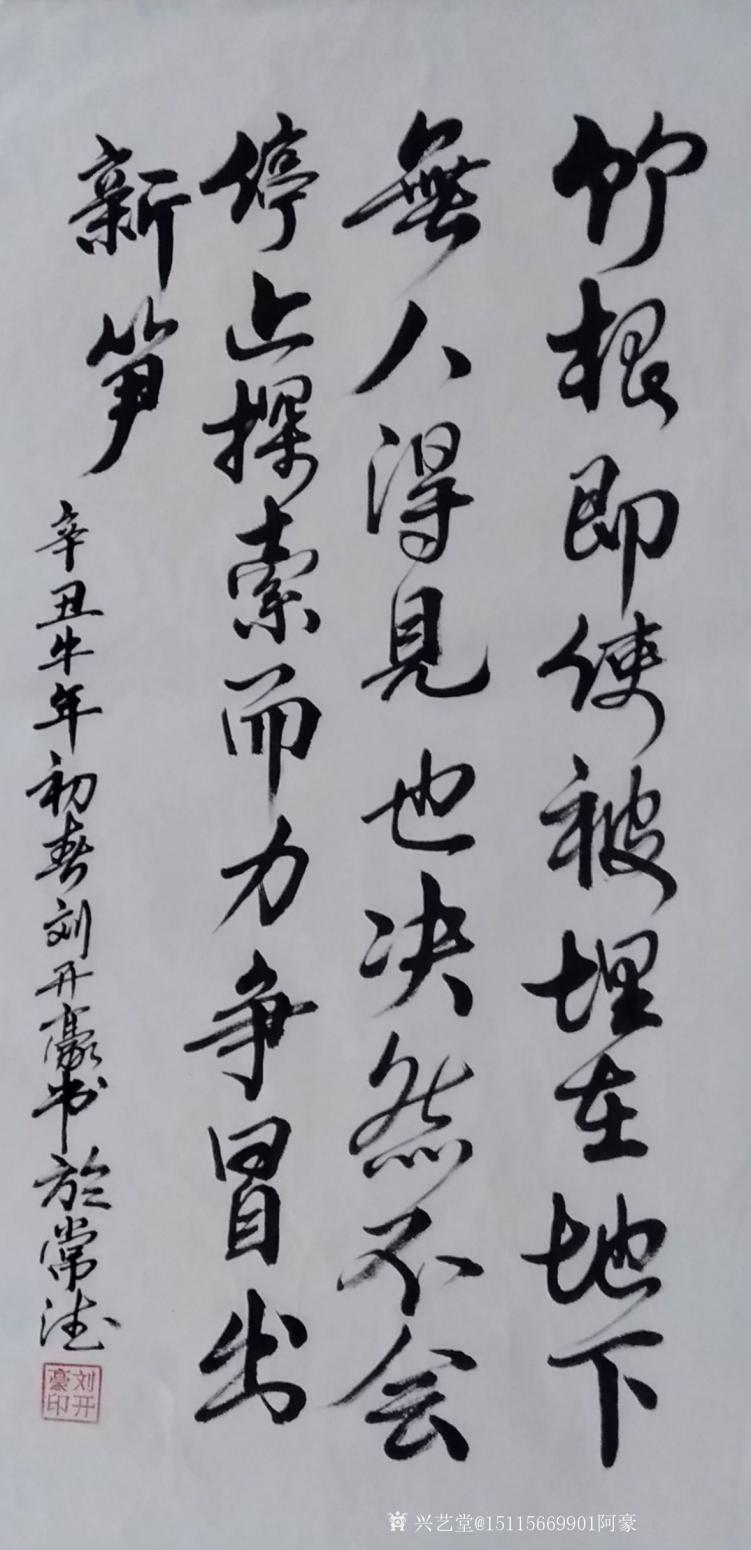 竹根即使被埋在地下
無人得見也决然不会
停止探索而力争冒出
新笋
辛丑牛年初春刘开豪书於常德
刘开豪印
兴艺堂@15115669901阿豪